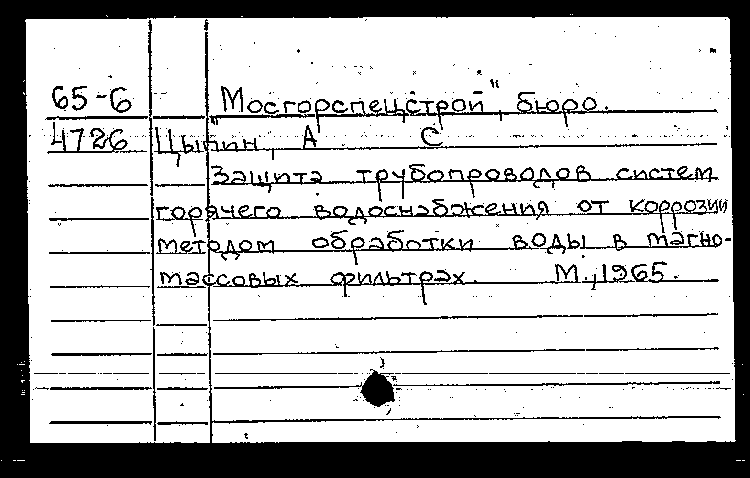 65-6 "Мосгорспецстрой", бюро.
4726 Цыпин, А С
Защита трубопроводов систем
горячего водоснабжения от коррозии
методом обработки воды в магно-
массовых фильтрах. М.,1965.